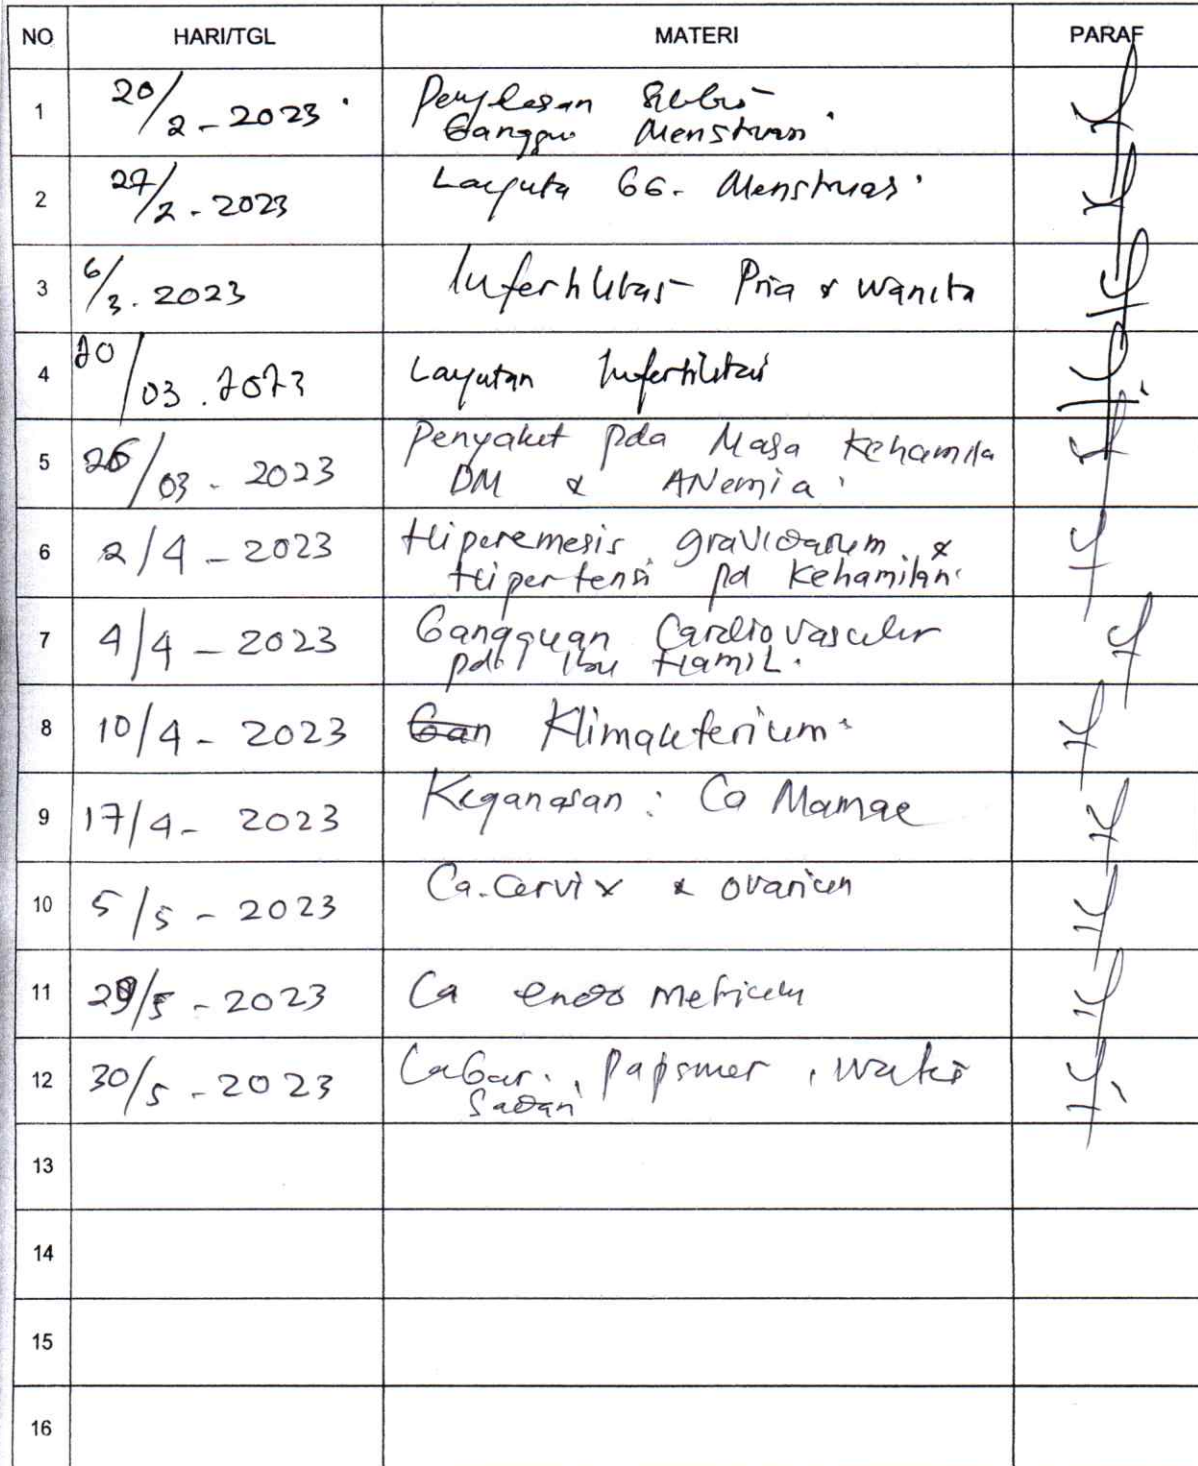 NO HARI/TGL MATERI PARAF
1 20/2-2023 Penjelasan
Ganggu Menstruasi
2 27/2-2023 Layuta GG. Menstruasi
3 6/3.2023 Infertilitas Pria & wanita
4 20/03.2023 Layutan Infertilitas
5 26/03-2023 Penyakit pda Masa Kehamila
DM & ANemia
6 2/4-2023 Hiperemesis gravidarum &
Hipertensi pd Kehamilan
7 4/4-2023 Gangguan Cardiovasculer
pda Ibu Hamil.
8 10/4-2023 Gan Klimakterium
9 17/4-2023 Keganasan : Ca Mamae
10 5/5-2023 Ca.Cervix & Ovarium
11 29/5-2023 Ca endometrium
12 30/5-2023 papsmer,
Sadari
13
14
15
16